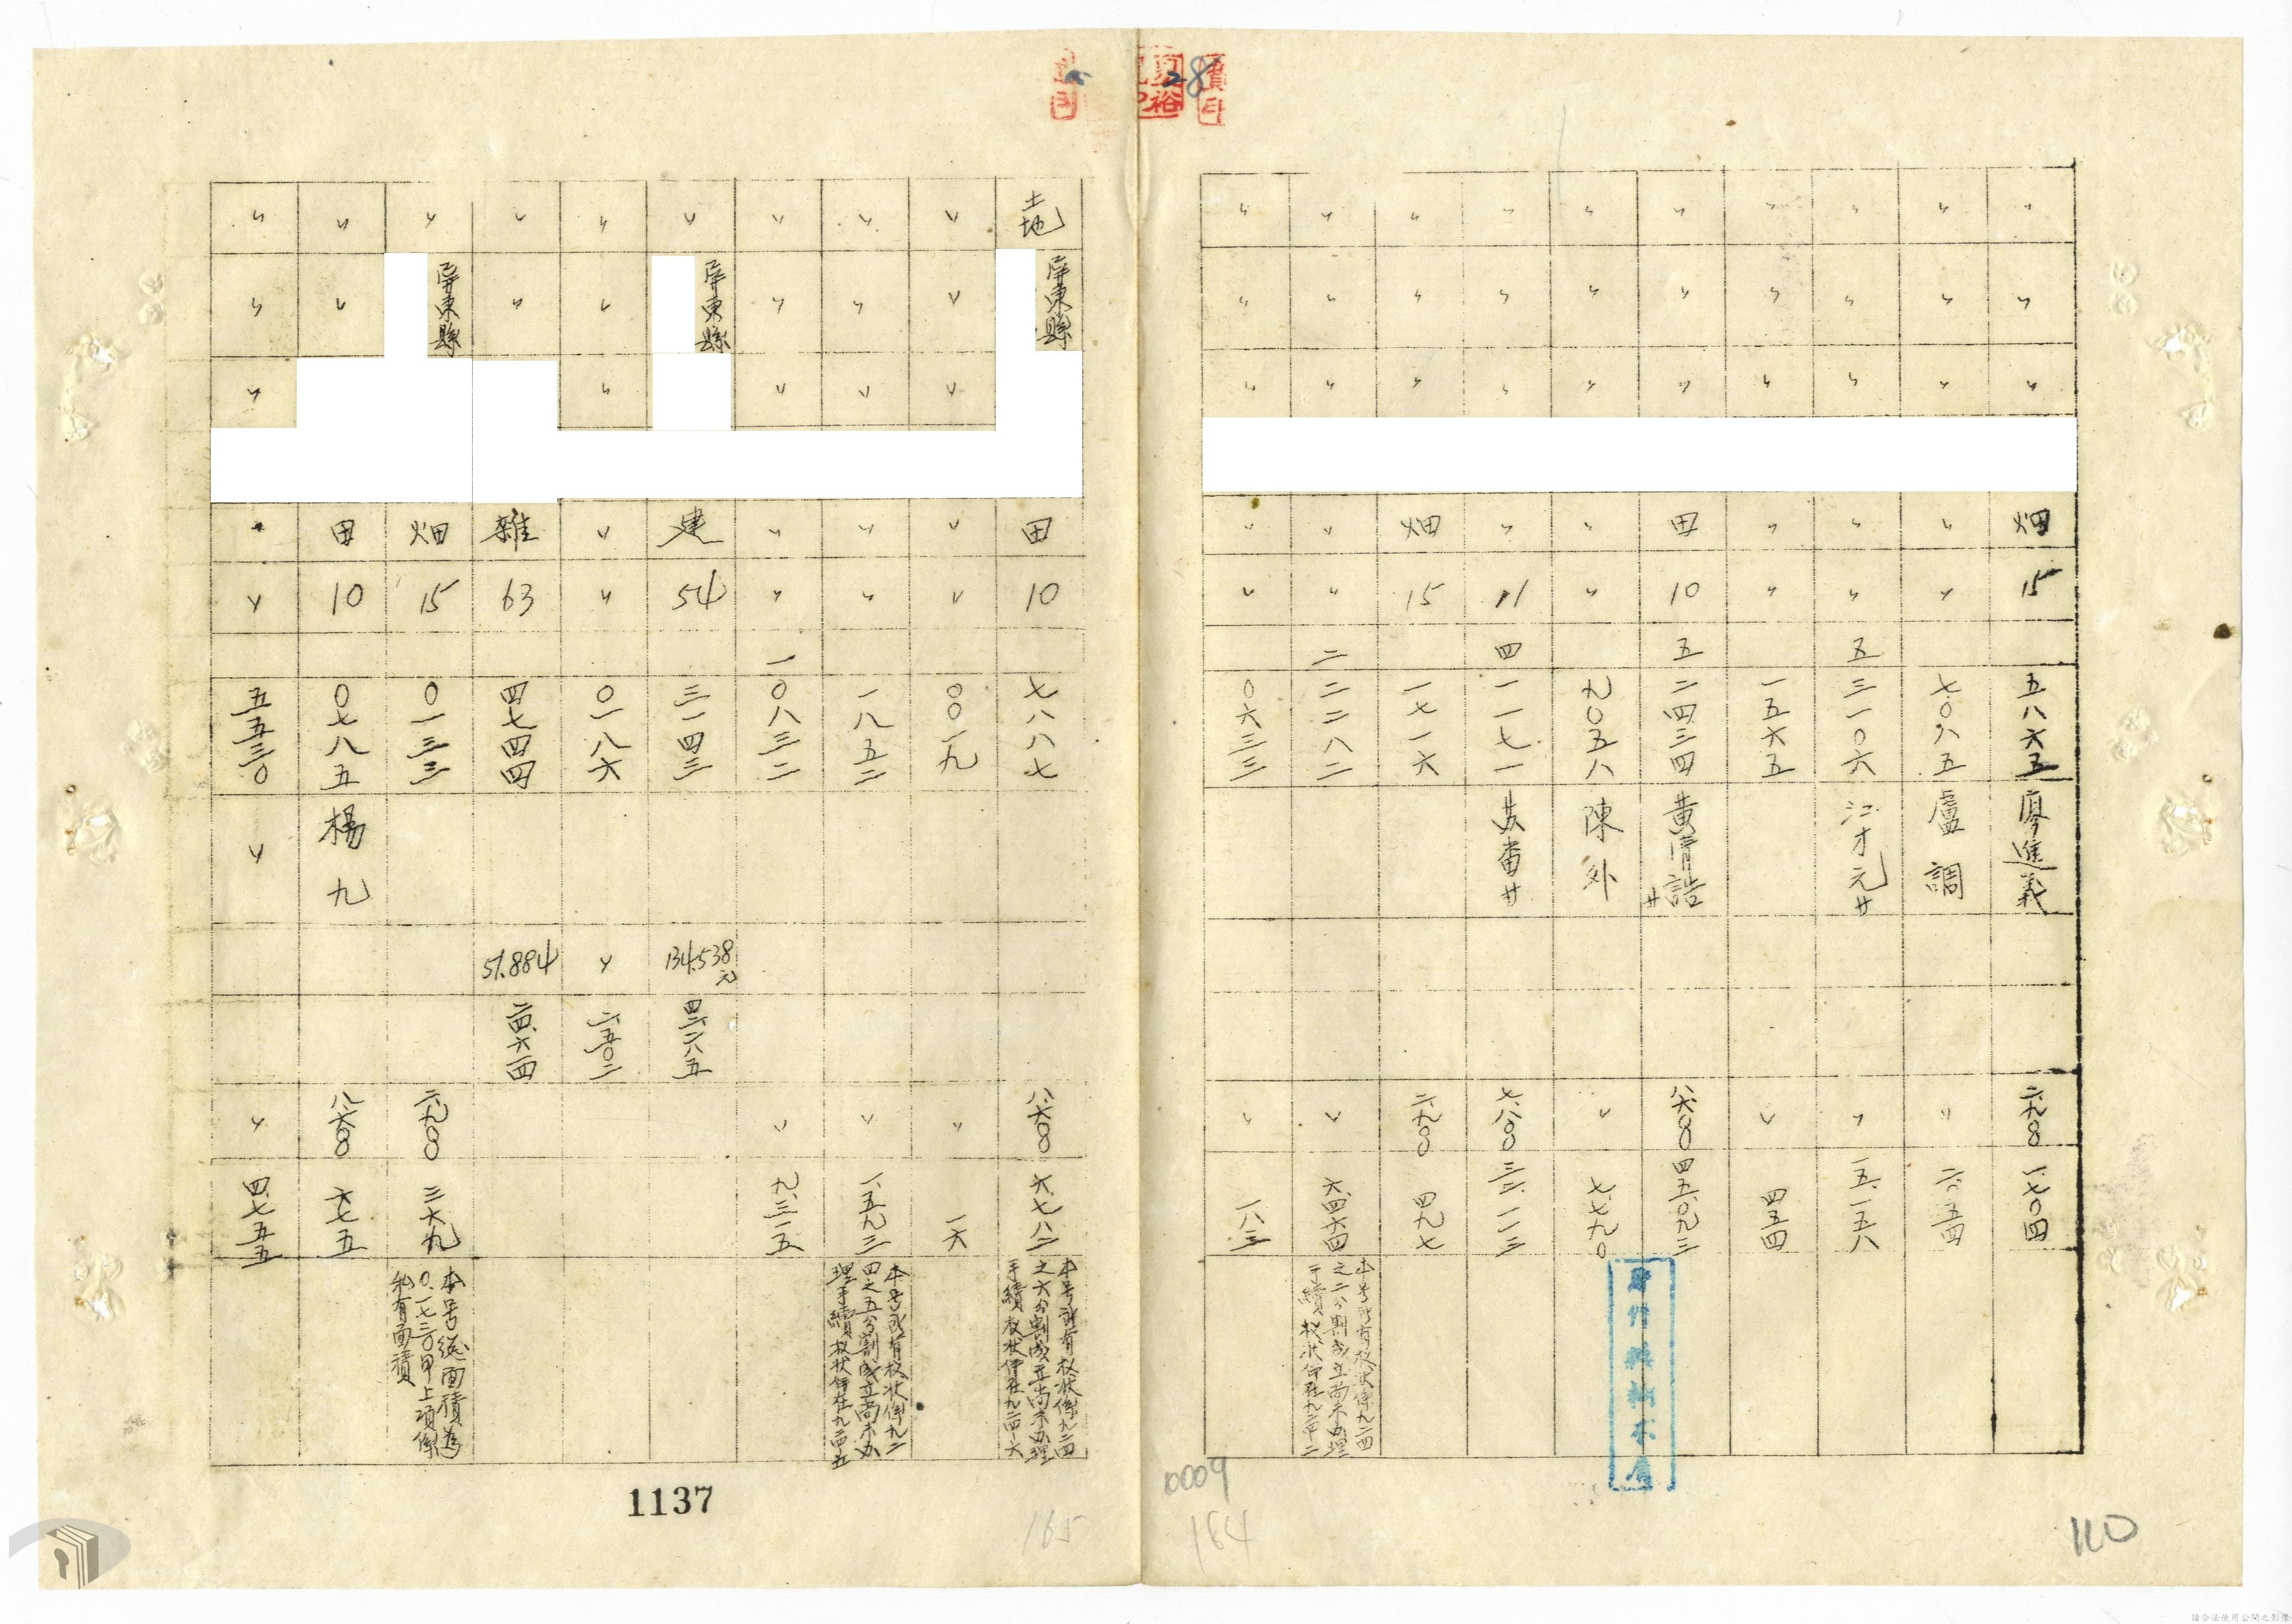 28
〃 〃 〃 畑 15 五八六五 廖進義 二.九〇〇 一.七〇四
〃 〃 〃 〃 〃 七〇八五 盧調 〃 二.〇五四
〃 〃 〃 〃 〃 五三一〇六 江才元廿 〃 一五.一五八
〃 〃 〃 〃 〃 一五六五 〃 四五四
〃 〃 〃 田 10 五二四三四 黃清誥廿 八.六〇〇 四五.〇九三
〃 〃 〃 〃 〃 九〇五八 陳外 〃 七.七九〇
〃 〃 〃 〃 11 四一一七一 七.八〇〇 三二.一一三
〃 〃 〃 畑 15 一七一六 二.九〇〇 四九七
〃 〃 〃 〃 〃 二二二八二 〃 六.四六四 本号所有权状係九二四之二分割成立尚未办理手續权状仔在九二四二
〃 〃 〃 〃 〃 〇六三三 〃 一八三
0009
164
110
土地 屏東縣 田 10 七八八七 八.六〇〇 六.七八二 本号所有权状係九二四之六分割成立尚未办理手續权状仔在九二四六
〃 〃 〃 〃 〃 〇〇一九 〃 一六
〃 〃 〃 〃 〃 一八五二 〃 一.五九三 本号所有权状係九二四之五分割成立尚未办理手續权状仔在九二四五
〃 〃 〃 〃 〃 一〇八三二 〃 九.三一五
〃 屏東縣 建 54 三一四三 134.538元 四二.二八五
〃 〃 〃 〃 〃 〇一八六 〃 二.五〇二
〃 〃 雜 63 四七四四 51.884 二四.六一四
〃 屏東縣 畑 15 〇一三三 二.九〇〇 三六九 本号總面積為〇.一七三〇甲上項係私有面積
〃 〃 田 10 〇七八五 楊九 八.六〇〇 六七五
〃 〃 〃 〃 〃 五五三〇 〃 〃 四.七五五
1137
165
請合法使用公開之影像